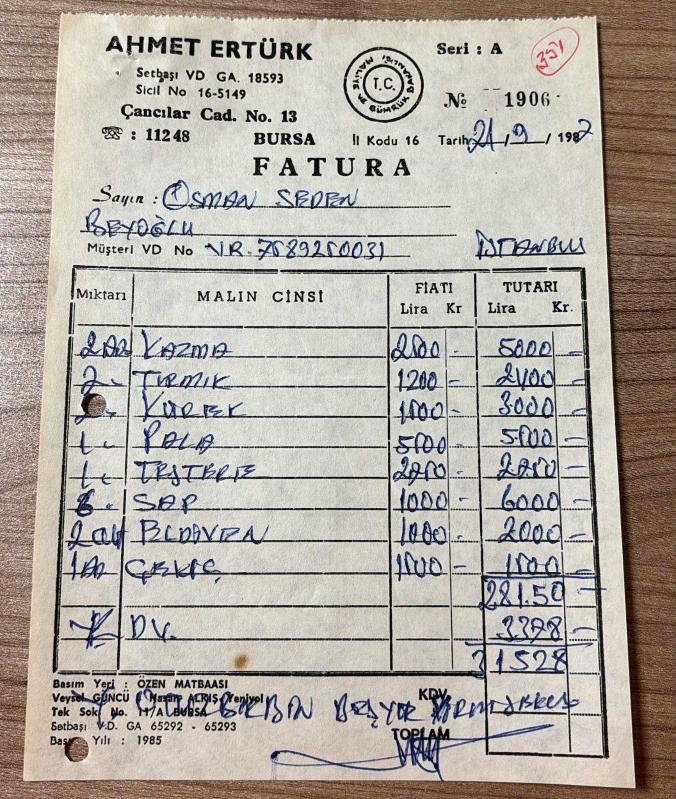 AHMET ERTÜRK
Setbaşı VD GA. 18593
Sicil No 16-5149
Çancılar Cad. No. 13
☎ : 11248 BURSA İl Kodu 16
T.C.
MALİYE VE GÜMRÜK BAKANLIĞI
Seri : A
351
№ 1906
Tarih 21/9/1987
FATURA
Sayın : OSMAN SEDEN
BEYOĞLU
Müşteri VD No VR. 7589250031 İSTANBUL
Mıktarı MALIN CİNSİ FİATI TUTARI
Lira Kr Lira Kr.
2 Ad KAZMA 2500 - 5000 -
2 - TIRMIK 1200 - 2400 -
KÜREK 1500 - 3000 -
1 - PALA 5500 - 5500 -
1 - TESTERE 2750 - 2750 -
6 - SAP 1000 - 6000 -
2 ELDİVEN 1000 - 2000 -
1 Ad ÇEKİÇ 1500 - 1500 -
28150 -
K DV. 3378 -
31528
Basım Yeri : ÖZEN MATBAASI
Veysel GÜNCÜ Hasan ALKIŞ Yeniyol
Tek Sok. No. 11/A BURSA
Setbaşı V.D. GA 65292 - 65293
Basım Yılı : 1985
KDV
TOPLAM